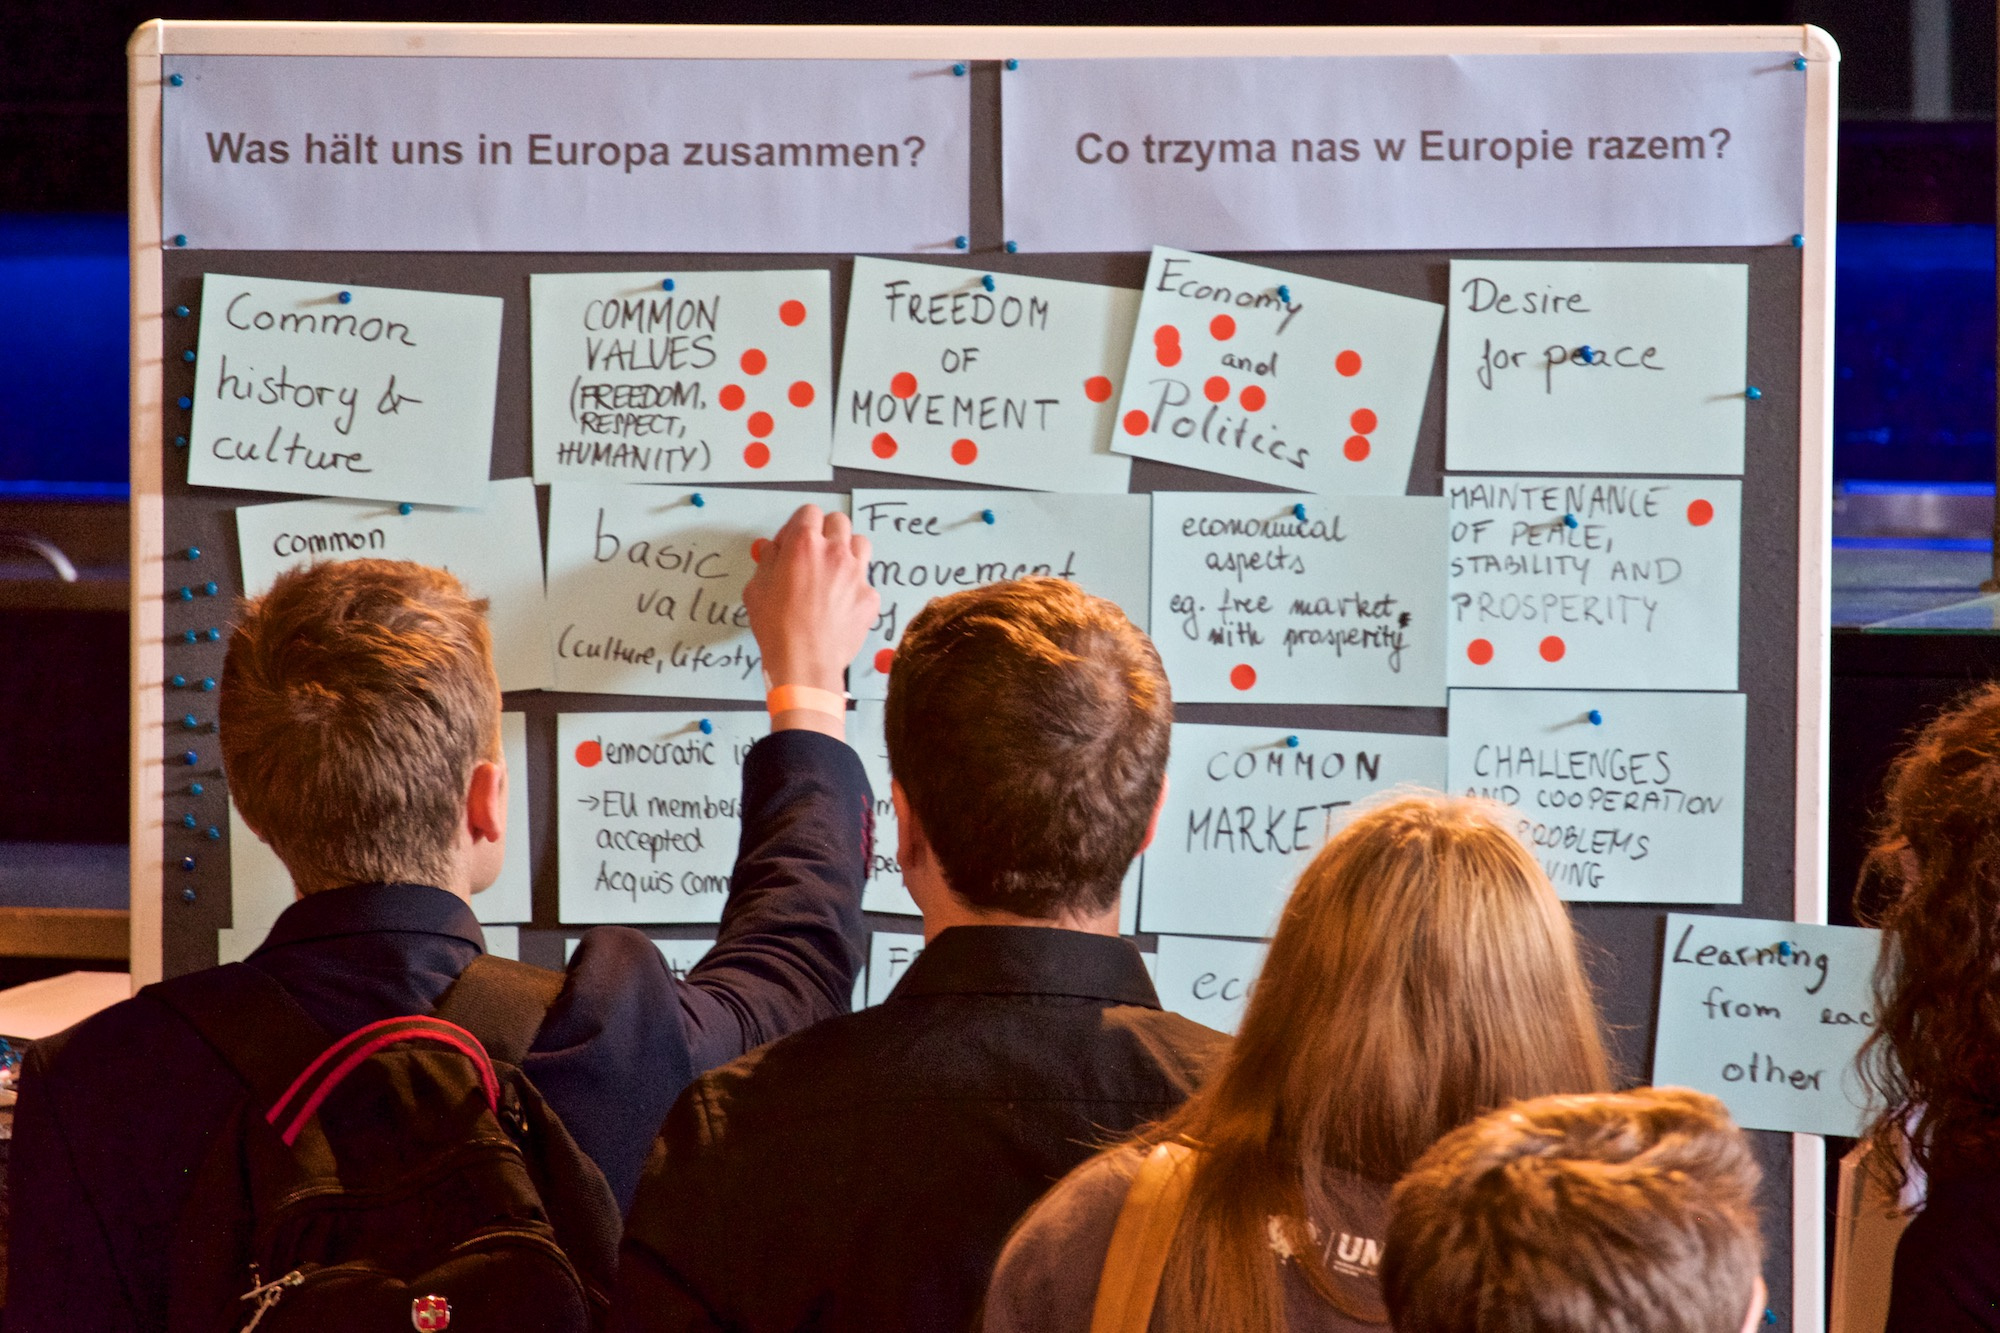 Was hält uns in Europa zusammen?
Co trzyma nas w Europie razem?
Common
history &
culture
COMMON
VALUES
(FREEDOM,
RESPECT,
HUMANITY)
FREEDOM
OF
MOVEMENT
Economy
and
Politics
Desire
for peace
common
basic
value
(culture, lifesty
Free
movement
of
economical
aspects
eg. free market
with prosperity
MAINTENANCE
OF PEACE,
STABILITY AND
PROSPERITY
democratic
→ EU member
accepted
Acquis comm
COMMON
MARKET
CHALLENGES
AND COOPERATION
PROBLEMS
VING
Learning
from eac
other
UN